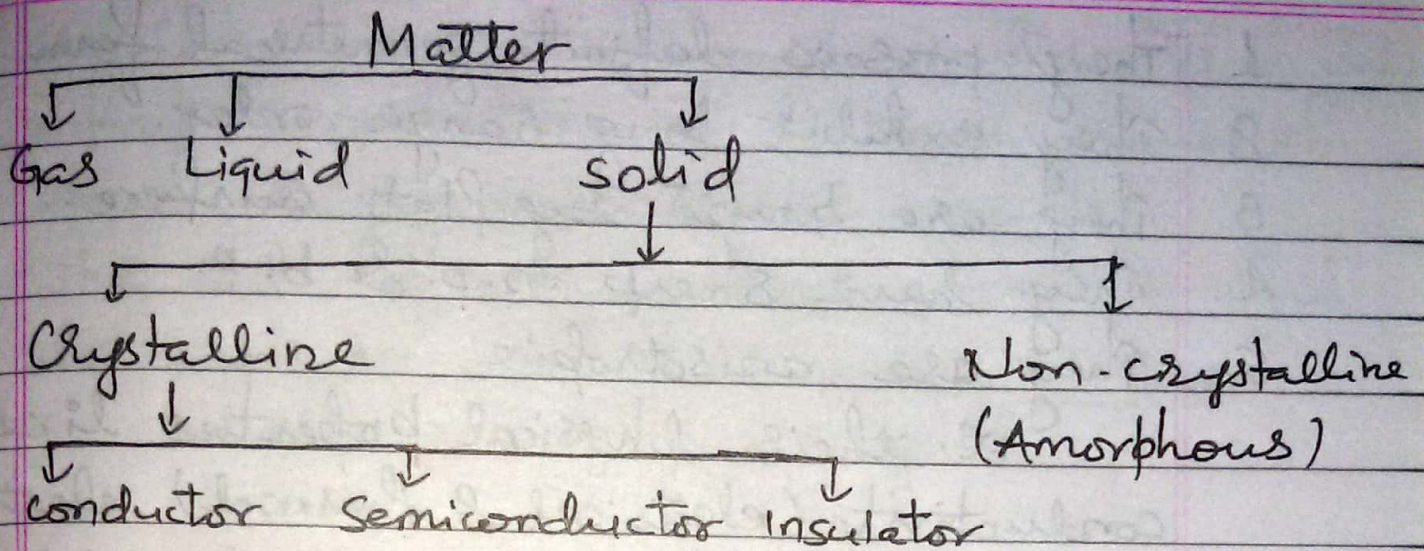 Matter
Gas Liquid solid
Crystalline Non-crystalline
(Amorphous)
conductor semiconductor insulator